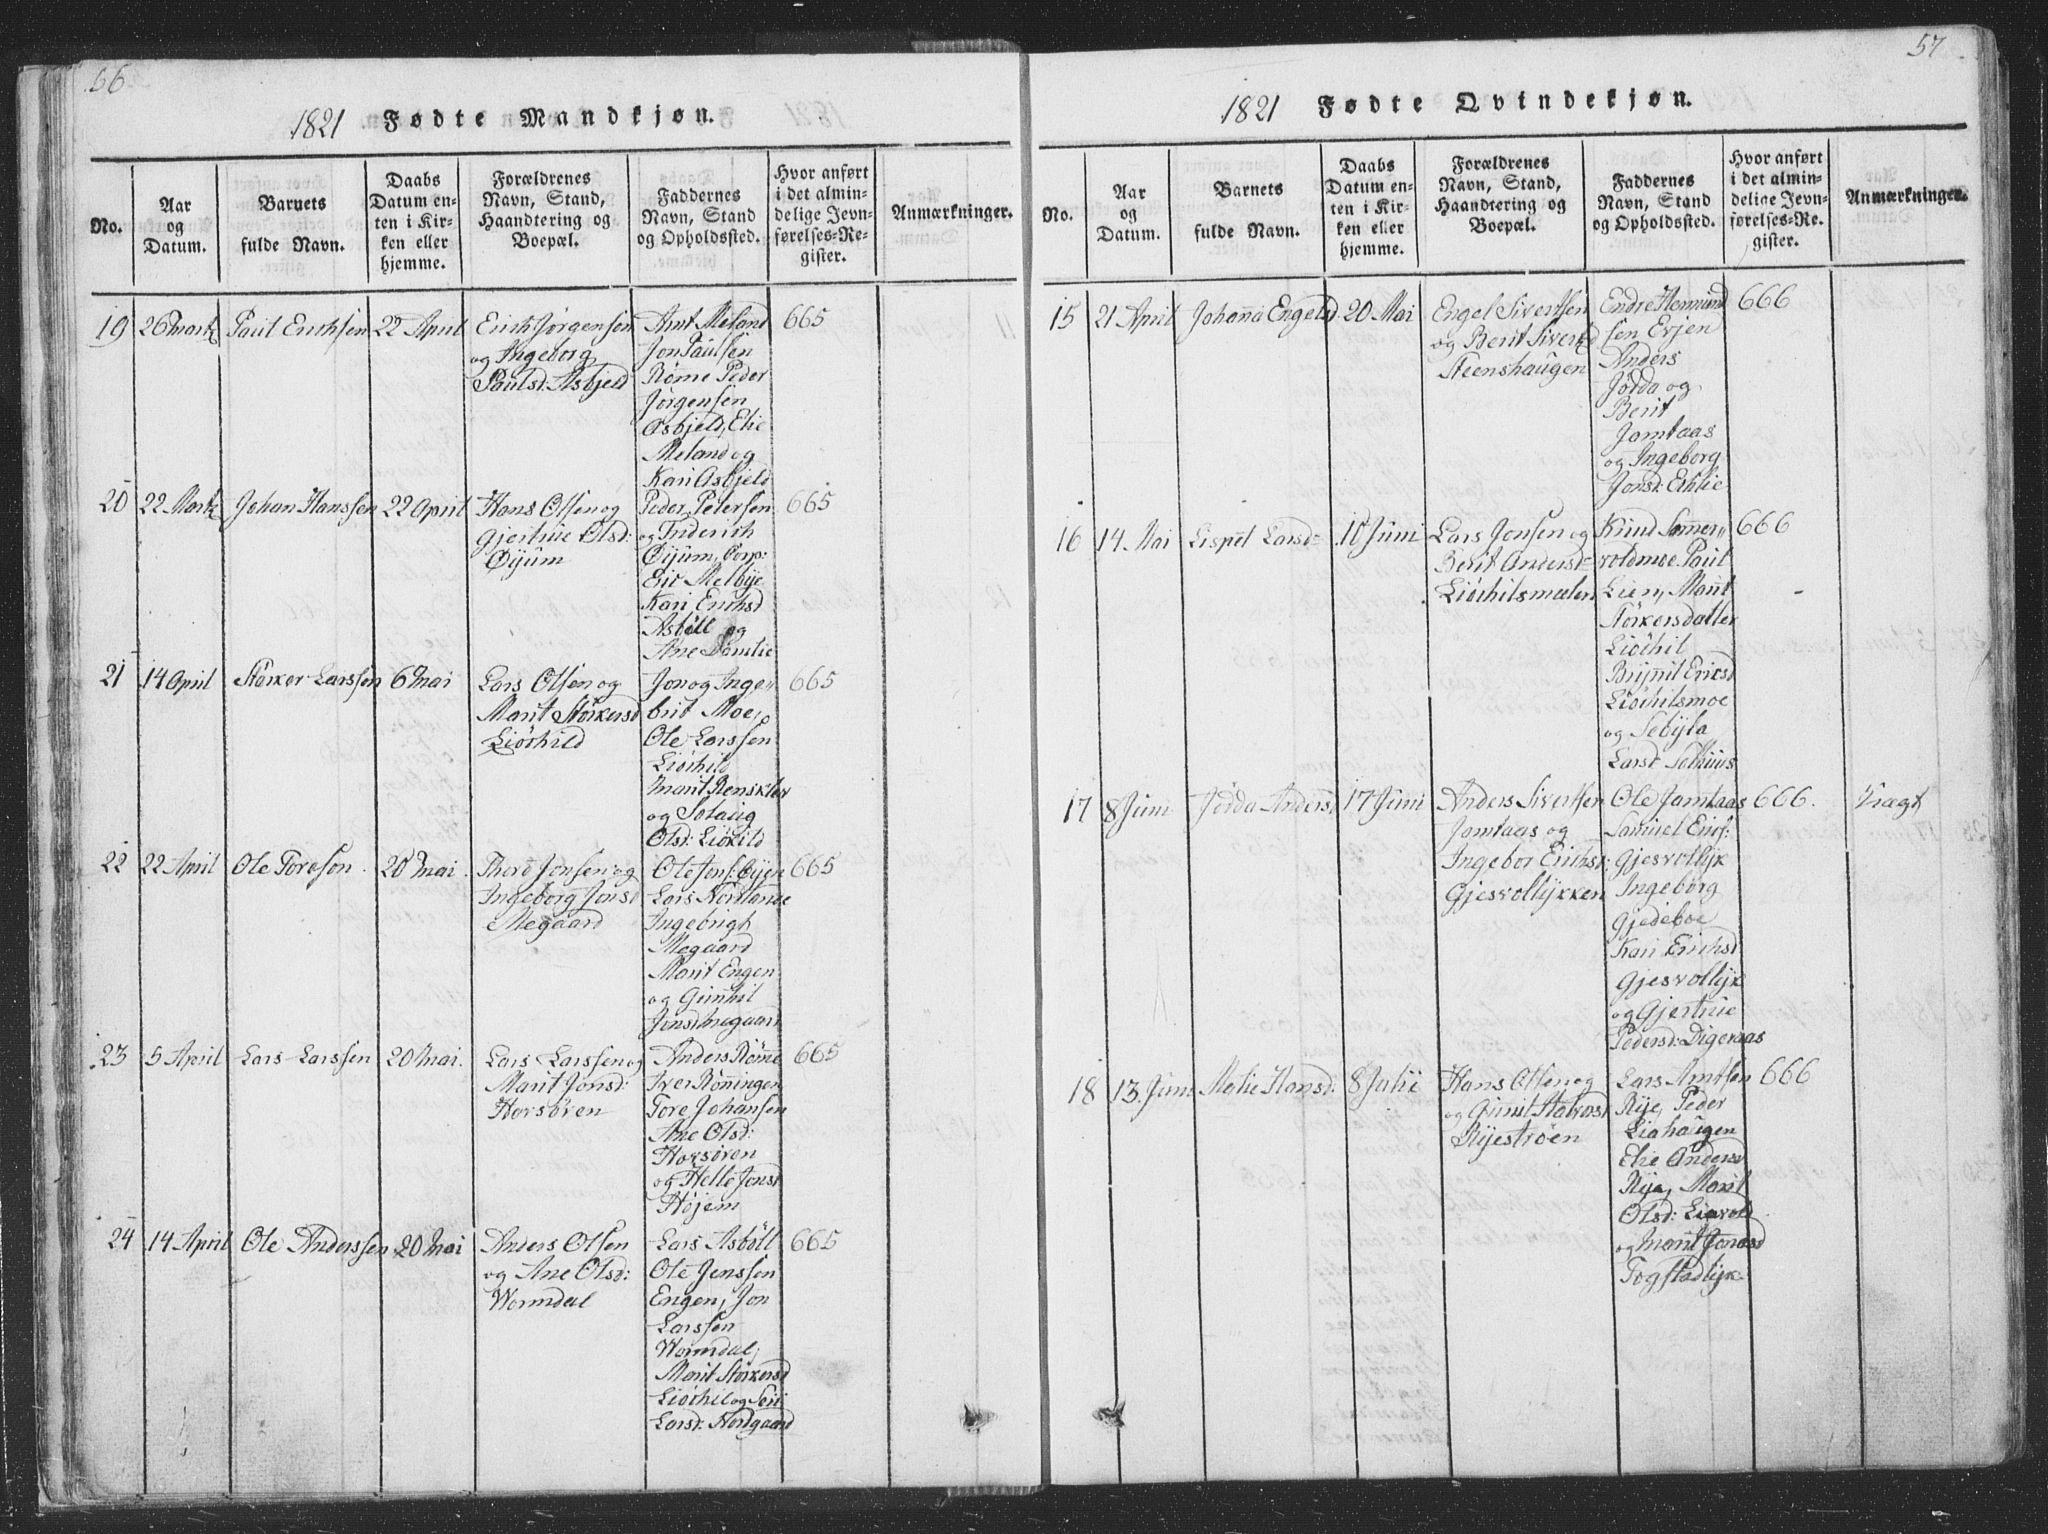 56
1821 Fødte Mandkjøn.
No.
Aar
og
Datum.
Barnets
fulde Navn.
Daabs
Datum en-
ten i Kir-
ken eller
hjemme.
Forældrenes
Navn, Stand,
Haandtering og
Boepæl.
Faddernes
Navn, Stand
og Opholdssted.
Hvor anført
i det almin-
delige Jevn-
førelses-Re-
gister.
Anmærkninger.
19
26 Martz
Paul Erichsen
22 April
Erich Jørgensen
og Ingeborg
Paulsd: Asbjeld
Arnt Meland
Jon Paulsen
Røme Peder
Jørgensen
Asbjeld, Elie
Meland og
Kari Asbjeld
665
20
22 Martz
Johan Hanssen
22 April
Hans Olsen og
Gjertrue Olsd:
Øyum
Peder Petersen
og Friderich
Øyum, Corp:
Eric Melbye
Kari Erichsd
Asbøll og
Ane Damlie
665
21
14 April
Størker Larssen
6 Mai
Lars Olsen og
Marit Størkersd
Liøchild
Jon og Inge„
brit Moe,
Ole Larssen
Liøchild
Marit Rensklev
og Solaug
Olsd: Liøkild
665
22
22 April
Ole Toresen
20 Mai.
Thord Jonsen og
Ingeborg Jonsd
Megaard
Ole Jons: Øyen
Lars Nordlande
Ingebrigt
Megaard
Marit Engen
og Gunhil
Jonsd Megaard
665
23
5 April
Lars Larssen
20 Mai.
Lars Larssen og
Marit Jonsd:
Horsøren
Anders Røme
Iver Rønningen
Tore Johansen
Ane Olsd:
Horsøren
og Helle Jonsd
Højem
665
24
14 April
Ole Anderssen
20 Mai
Anders Olsen
og Ane Olsd:
Wormdal
Lars Asbøll
Ole Jenssen
Engen, Jon
Larssen
Wormdal,
Marit Størkersd
Liøchil og Seri
Larsd: Nordgaard
665
57
1821 Fødte Qvindekjøn.
No.
Aar
og
Datum.
Barnets
fulde Navn.
Daabs
Datum en-
ten i Kir-
ken eller
hjemme.
Forældrenes
Navn, Stand,
Haandtering og
Boepæl.
Faddernes
Navn, Stand
og Opholdssted.
Hvor anført
i det almin-
delige Jevn-
førelses-Re-
gister.
Anmærkninger.
15
21 April
Johanna Engelsd
20 Mai
Engel Sivertsen
og Berit Sivertsd
Steenshaugen
Endre Hemund
sen Evjen
Anders
Jørda og
Berit
Jamtaas
og Ingeborg
Jonsd: Echlie
666
16
14 Mai
Lispet Larsd:
10 Juni
Lars Jonsen og
Berit Andersd:
Liøchilsmælen
Knud Sommer„
voldmoe Paul
Lien, Marit
Størkersdatter
Liøchil
Brynnil Ericsd
Liøchilsmoe
og Sebyla
Larsd: Solhuus
666
17
8 Juni
Jørda Andersd
17 Juni
Anders Sivertsen
Jamtaas og
Ingebor Erichsd:
Gjesvollykken
Ole Jamtaas
Samuel Erics:
Gjesvollyk
Ingeborg
Gjedeboe
Kari Erichsd:
Gjesvollyk
og Gjertrue
Pedersd: Digeraas
666.
18
13. Juni
Malie Hansd:
8 Julii
Hans Olsen og
og Gunil
Ryestrøen
Lars Arntsen
Rye, Peder
Liahaugen
Elie Andersd
Rye, Marit
Olsd: Liavold
og Marit Jonasd
Togstadlyk
666